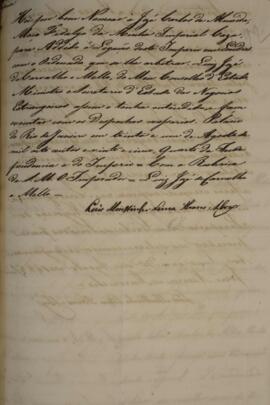 Hei por bem Nomear a José Carlos de Almeida,
Moço Fidalgo da Minha Imperial Caza,
para Addido á Legação deste Imperio em
com o Ordenado que se lhe arbitrar. Luiz José
de Carvalho e Mello, do Meu Conselho d'Estado
Ministro e Secretario d'Estado dos Negocios
Estrangeiros assim o tenha entendido e faça
executar com os Despachos necessarios. Palacio
do Rio de Janeiro em trinta e um de Agosto de
mil oito centos e vinte e cinco, Quarto da Inde
pendencia e do Imperio = Com a Rubrica
de S. M. O Imperador = Luiz José de Carvalho
e Mello =
Luis Moutinho Lima Alvares